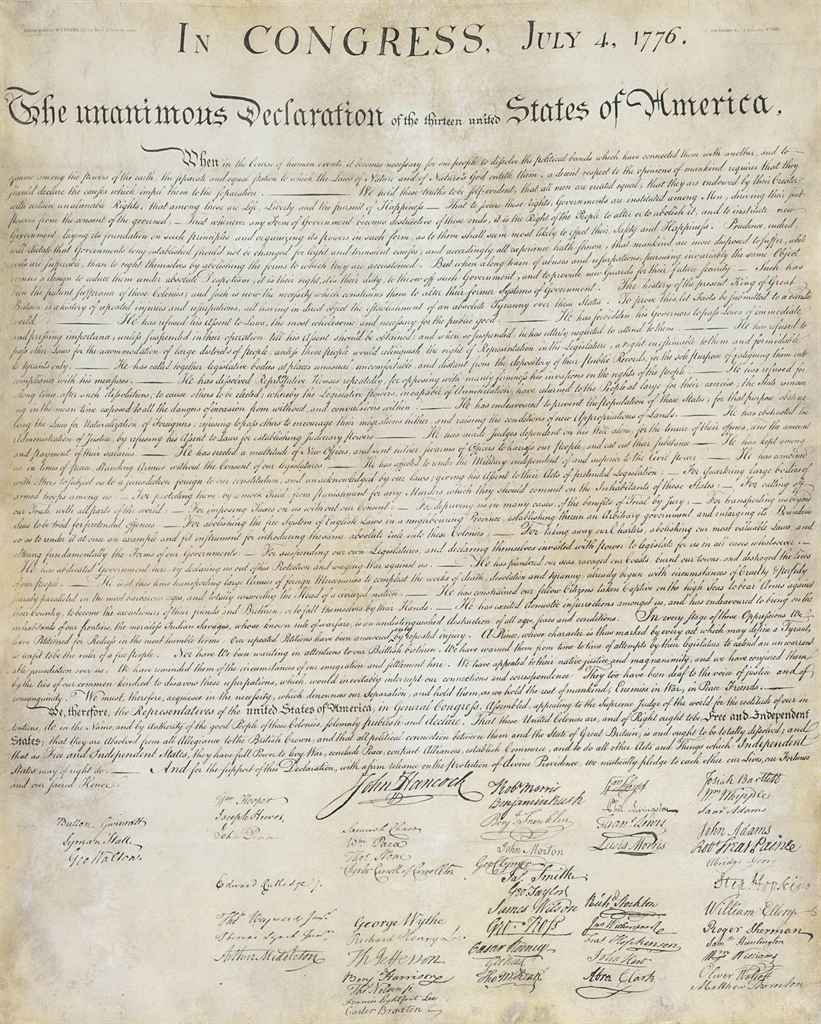 In CONGRESS, July 4, 1776.
The unanimous Declaration of the thirteen united States of America,
When in the Course of human events, it becomes necessary for one people to dissolve the political bands which have connected them with another, and to
assume among the powers of the earth, the separate and equal station to which the Laws of Nature and of Nature's God entitle them, a decent respect to the opinions of mankind requires that they
should declare the causes which impel them to the separation. — We hold these truths to be self-evident, that all men are created equal, that they are endowed by their Creator
with certain unalienable Rights, that among these are Life, Liberty and the pursuit of Happiness. — That to secure these rights, Governments are instituted among Men, deriving their just
powers from the consent of the governed, — That whenever any Form of Government becomes destructive of these ends, it is the Right of the People to alter or to abolish it, and to institute new
Government, laying its foundation on such principles and organizing its powers in such form, as to them shall seem most likely to effect their Safety and Happiness. Prudence, indeed,
will dictate that Governments long established should not be changed for light and transient causes; and accordingly all experience hath shewn, that mankind are more disposed to suffer, while
evils are sufferable, than to right themselves by abolishing the forms to which they are accustomed. But when a long train of abuses and usurpations, pursuing invariably the same Object
evinces a design to reduce them under absolute Despotism, it is their right, it is their duty, to throw off such Government, and to provide new Guards for their future security. — Such has
been the patient sufferance of these Colonies; and such is now the necessity which constrains them to alter their former Systems of Government. The history of the present King of Great
Britain is a history of repeated injuries and usurpations, all having in direct object the establishment of an absolute Tyranny over these States. To prove this, let Facts be submitted to a candid
world. — He has refused his Assent to Laws, the most wholesome and necessary for the public good. — He has forbidden his Governors to pass Laws of immediate
and pressing importance, unless suspended in their operation till his Assent should be obtained; and when so suspended, he has utterly neglected to attend to them. — He has refused to
pass other Laws for the accommodation of large districts of people, unless those people would relinquish the right of Representation in the Legislature, a right inestimable to them and formidable
to tyrants only. — He has called together legislative bodies at places unusual, uncomfortable, and distant from the depository of their public Records, for the sole purpose of fatiguing them into
compliance with his measures. — He has dissolved Representative Houses repeatedly, for opposing with manly firmness his invasions on the rights of the people. — He has refused for
a long time, after such dissolutions, to cause others to be elected; whereby the Legislative powers, incapable of Annihilation, have returned to the People at large for their exercise; the State remain-
ing in the mean time exposed to all the dangers of invasion from without, and convulsions within. — He has endeavoured to prevent the population of these States; for that purpose obstruc-
ting the Laws for Naturalization of Foreigners; refusing to pass others to encourage their migrations hither, and raising the conditions of new Appropriations of Lands. — He has obstructed the
Administration of Justice, by refusing his Assent to Laws for establishing Judiciary powers. — He has made Judges dependent on his Will alone, for the tenure of their offices, and the amount
and payment of their salaries. — He has erected a multitude of New Offices, and sent hither swarms of Officers to harrass our people, and eat out their substance. — He has kept among
us, in times of peace, Standing Armies without the Consent of our legislatures. — He has affected to render the Military independent of and superior to the Civil power. — He has combined
with others to subject us to a jurisdiction foreign to our constitution, and unacknowledged by our laws; giving his Assent to their Acts of pretended Legislation: — For Quartering large bodies of
armed troops among us: — For protecting them, by a mock Trial, from punishment for any Murders which they should commit on the Inhabitants of these States: — For cutting off
our Trade with all parts of the world: — For imposing Taxes on us without our Consent: — For depriving us in many cases, of the benefits of Trial by Jury: — For transporting us beyond
Seas to be tried for pretended offences — For abolishing the free System of English Laws in a neighbouring Province, establishing therein an Arbitrary government, and enlarging its Boundaries
so as to render it at once an example and fit instrument for introducing the same absolute rule into these Colonies: — For taking away our Charters, abolishing our most valuable Laws, and
altering fundamentally the Forms of our Governments: — For suspending our own Legislatures, and declaring themselves invested with power to legislate for us in all cases whatsoever. —
He has abdicated Government here, by declaring us out of his Protection and waging War against us. — He has plundered our seas, ravaged our Coasts, burnt our towns, and destroyed the lives
of our people. — He is at this time transporting large Armies of foreign Mercenaries to compleat the works of death, desolation and tyranny, already begun with circumstances of Cruelty & perfidy
scarcely paralleled in the most barbarous ages, and totally unworthy the Head of a civilized nation. — He has constrained our fellow Citizens taken Captive on the high Seas to bear Arms against
their Country, to become the executioners of their friends and Brethren, or to fall themselves by their Hands. — He has excited domestic insurrections amongst us, and has endeavoured to bring on the
inhabitants of our frontiers, the merciless Indian Savages, whose known rule of warfare, is an undistinguished destruction of all ages, sexes and conditions. In every stage of these Oppressions We
have Petitioned for Redress in the most humble terms: Our repeated Petitions have been answered only by repeated injury. A Prince, whose character is thus marked by every act which may define a Tyrant,
is unfit to be the ruler of a free people. Nor have We been wanting in attentions to our Brittish brethren. We have warned them from time to time of attempts by their legislature to extend an unwarrant-
able jurisdiction over us. We have reminded them of the circumstances of our emigration and settlement here. We have appealed to their native justice and magnanimity, and we have conjured them
by the ties of our common kindred to disavow these usurpations, which, would inevitably interrupt our connections and correspondence. They too have been deaf to the voice of justice and of
consanguinity. We must, therefore, acquiesce in the necessity, which denounces our Separation, and hold them, as we hold the rest of mankind, Enemies in War, in Peace Friends. —
We, therefore, the Representatives of the united States of America, in General Congress, Assembled, appealing to the Supreme Judge of the world for the rectitude of our in-
tentions, do, in the Name, and by Authority of the good People of these Colonies, solemnly publish and declare, That these United Colonies are, and of Right ought to be Free and Independent
States; that they are Absolved from all Allegiance to the British Crown, and that all political connection between them and the State of Great Britain, is and ought to be totally dissolved; and
that as Free and Independent States, they have full Power to levy War, conclude Peace, contract Alliances, establish Commerce, and to do all other Acts and Things which Independent
States may of right do. — And for the support of this Declaration, with a firm reliance on the protection of divine Providence, we mutually pledge to each other our Lives, our Fortunes
and our sacred Honor.
Button Gwinnett
Lyman Hall
Geo Walton.
Wm Hooper
Joseph Hewes,
John Penn
Edward Rutledge /.
Thos Heyward Junr.
Thomas Lynch Junr.
Arthur Middleton
John Hancock
Samuel Chase
Wm Paca
Thos Stone
Charles Carroll of Carrollton
George Wythe
Richard Henry Lee
Th Jefferson
Benj Harrison
Thos Nelson jr.
Francis Lightfoot Lee
Carter Braxton
Robt Morris
Benjamin Rush
Benj Franklin
John Morton
Geo Clymer
Jas Smith
Geo Taylor
James Wilson
Geo Ross
Caesar Rodney
Geo Read
Tho M:Kean
Wm Floyd
Phil. Livingston
Frans Lewis
Lewis Morris
Richd Stockton
Jno Witherspoon
Fras Hopkinson
John Hart
Abra Clark
Josiah Bartlett
Wm Whipple
Saml Adams
John Adams
Robt Treat Paine
Elbridge Gerry
Step Hopkins
William Ellery
Roger Sherman
Saml Huntington
Wm Williams
Oliver Wolcott
Matthew Thornton